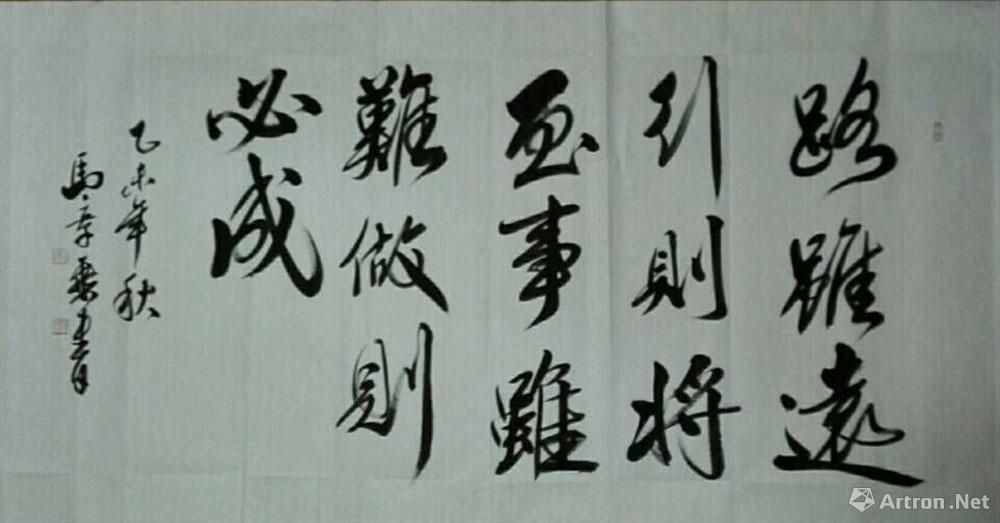 路雖遠
行則將
至事雖
難做則
必成
乙未年秋
馬
Artron.Net